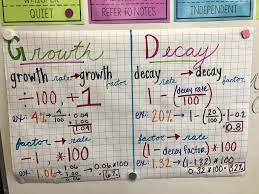 WHISPER
QUIET
REFER TO NOTES
INDEPENDENT
Growth
growth rate → growth factor
÷100 + 1
ex: 4% → 4/100 → 0.04 + 1.00 1.04
factor → rate
-1, *100
ex: 1.06 → 1.06 - 1.00 0.06 → 0.06*100 → 6%
Decay
decay rate → decay factor
1 - (decay rate/100)
ex: 20% → 1 - (20/100) → 1-0.2 0.8
factor → rate
(1 - decay factor) * 100
ex: 1.32 → (1-1.32) * 100
→ 0.32*100 → 32%